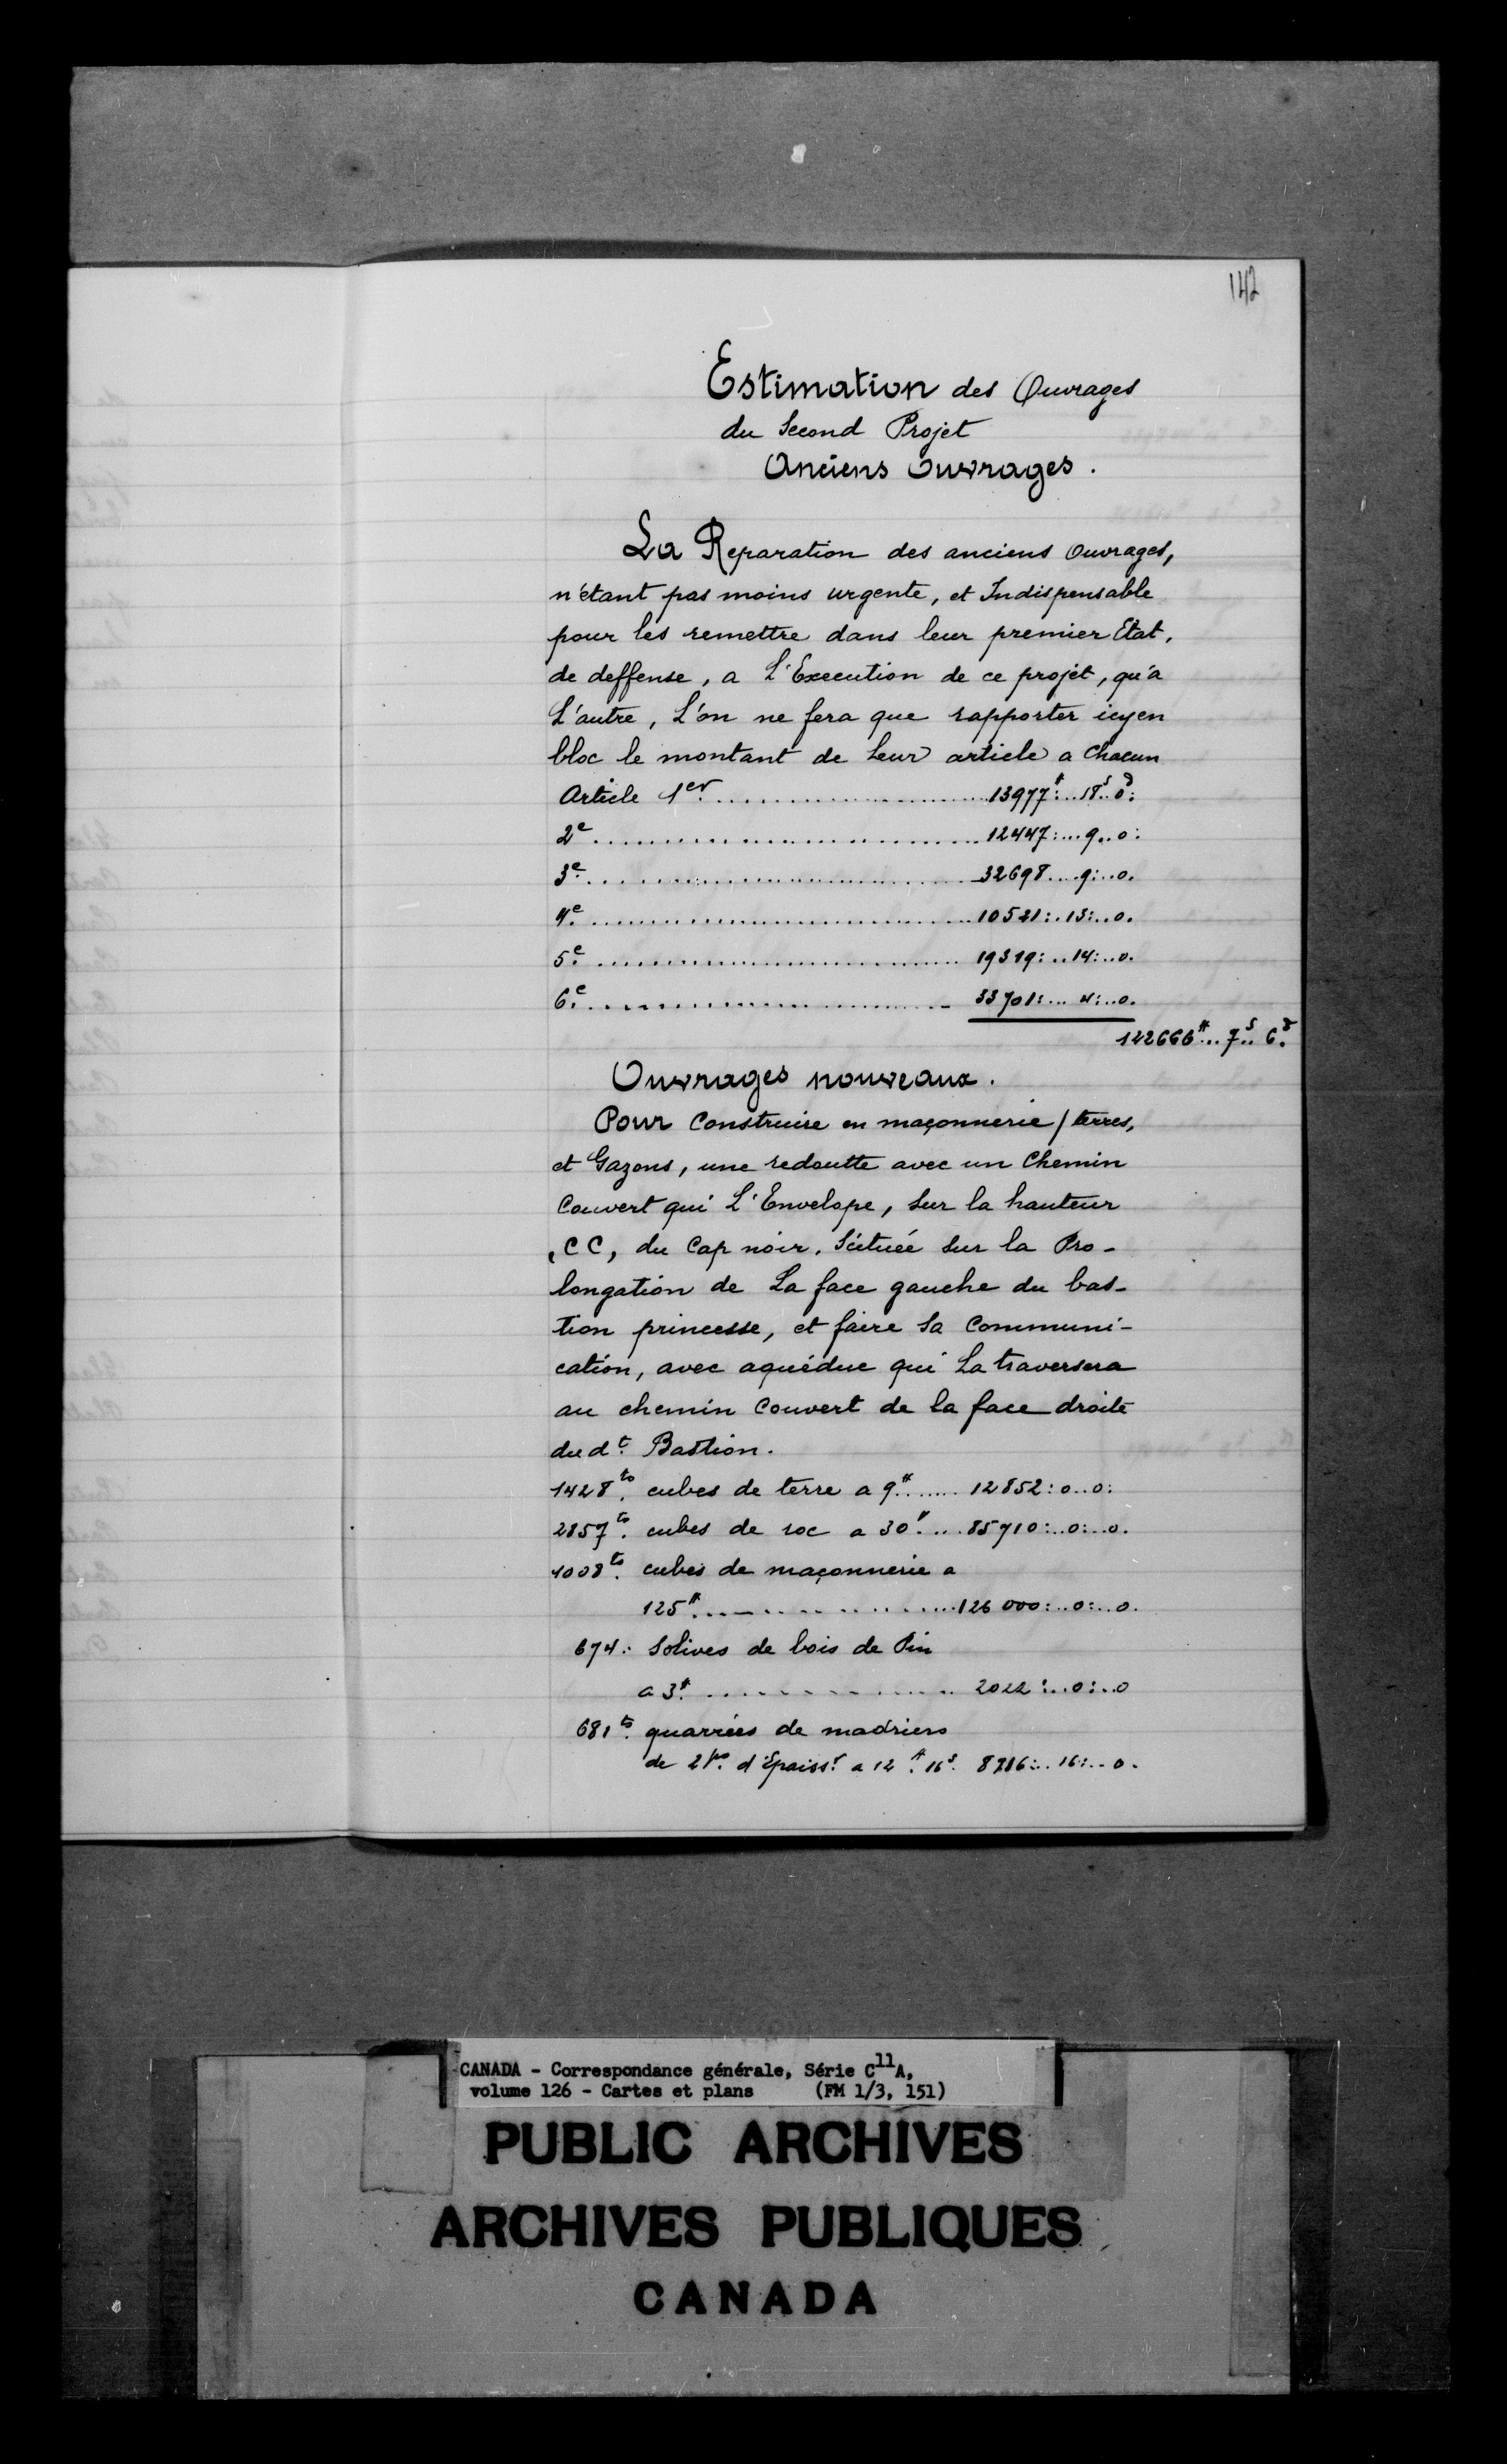 142
Estimation des Ouvrages
du Second Projet
Anciens Ouvrages.
La Reparation des anciens Ouvrages,
n'étant pas moins urgente, et Indispensable
pour les remettre dans leur premier Etat,
de deffense, a L'Execution de ce projet, qu'a
L'autre, L'on ne fera que rapporter icy en
bloc le montant de leur article a Chacun
Article 1er. .......... 13977#:..18s..0d:
2e .......... 12447:...9..0:
3e. .......... 32698....9:..0.
4e. .......... 10521:..13:..0.
5e. .......... 19319:..14:..0.
6e. .......... 33701:...4:..0.
122666#..7s..6d.
Ouvrages nouveaux.
Pour Construire en maçonnerie / terres,
et Gazons, une redoutte avec un Chemin
Couvert qui L'Envelope, sur la hauteur
, CC, du Cap noir. Scituée sur la Pro-
longation de La face gauche du bas-
tion princesse, et faire sa Communi-
cation, avec aquéduc qui La traversera
au chemin Couvert de la face droite
du dt. Bastion.
1428to. cubes de terre a 9#....... 12852:0..0:
2857to. cubes de roc a 30#.... 85710:..0:..0.
1008to. cubes de maçonnerie a
125#. .......... 126000:..0:..0.
674: Solives de bois de Pin
a 3#. .......... 2022:..0:..0
681to. quarrées de madriers
de 2po. d'Epaissr. a 12#.16s. 8716:..16:..0.
CANADA - Correspondance générale, Série C11A,
volume 126 - Cartes et plans (FM 1/3, 151)
PUBLIC ARCHIVES
ARCHIVES PUBLIQUES
CANADA